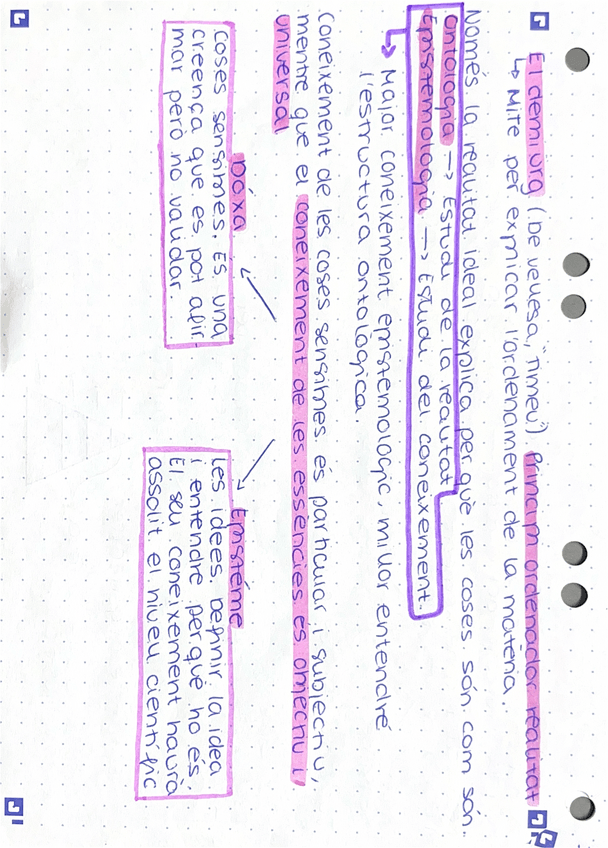 El demiurg (be vellesa, "Timeu") Principi ordenador realitat
↳ Mite per explicar l'ordenament de la matèria.
Només la realitat ideal explica per què les coses són com són.
Ontologia → Estudi de la realitat
Epistemologia → Estudi del coneixement.
↳ Major coneixement epistemològic, millor entendré
l'estructura ontologica.
Coneixement de les coses sensibles és particular i subjectiu,
mentre que el coneixement de les essències és objectiu i
universal
Dóxa
Coses sensibles. És una
creença que es pot afir-
mar però no validar.
Epistéme
Les idees. Definir la idea
i entendre perquè ho és.
El seu coneixement haurà
assolit el nivell científic